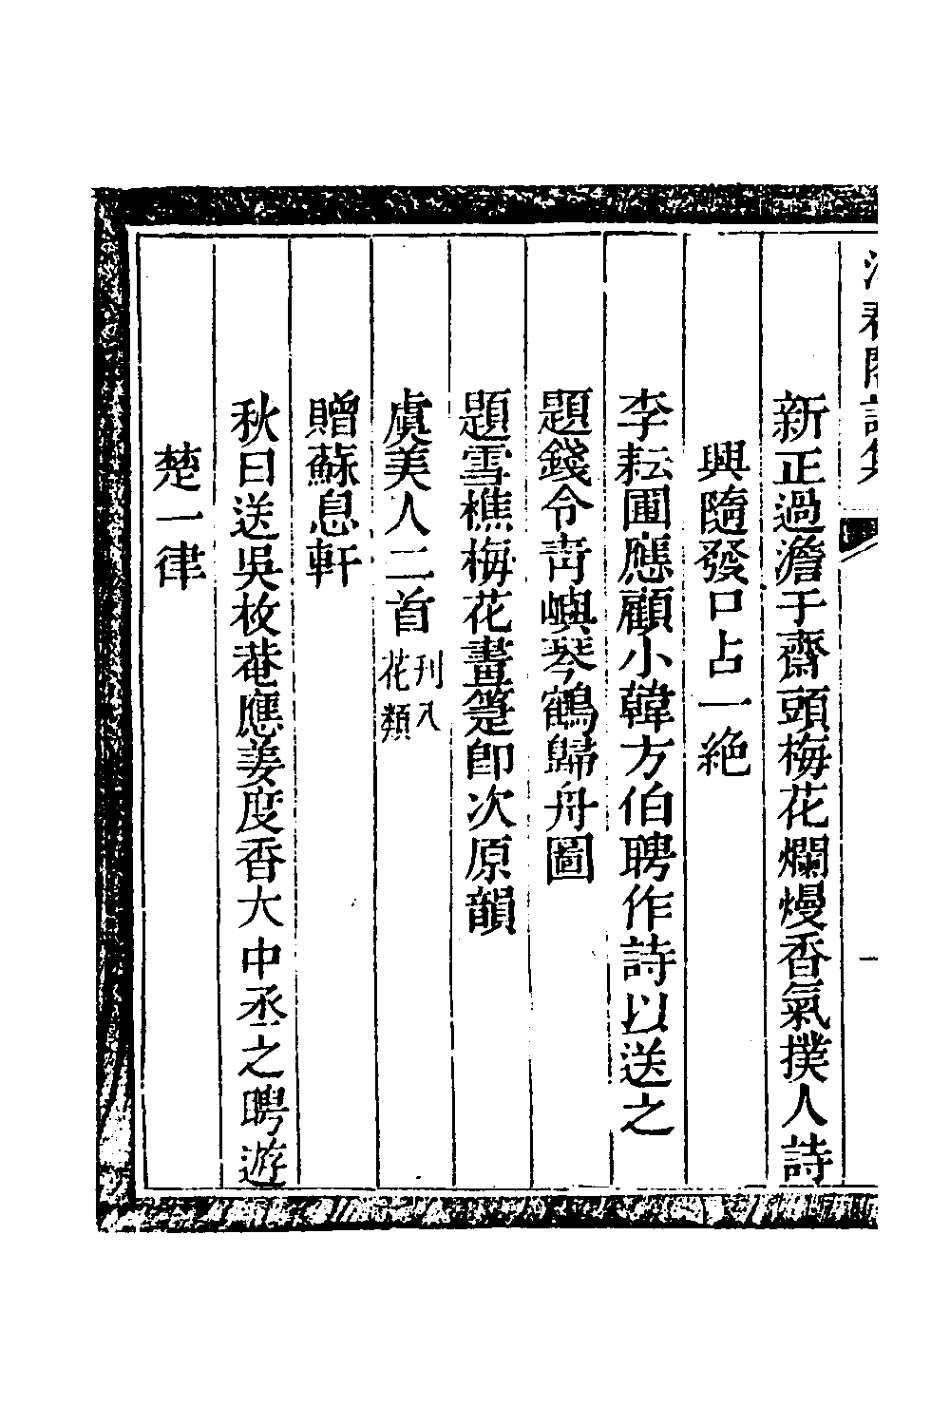 詩集
一
新正過澹于齋頭梅花爛熳香氣撲人詩
興隨發口占一絕
李耘圃應顧小韓方伯聘作詩以送之
題錢令靑嶼琴鶴歸舟圖
題雪樵梅花畫箑卽次原韻
虞美人二首刊入
花類
贈蘇息軒
秋日送吳枚菴應姜度香大中丞之聘遊
楚一律